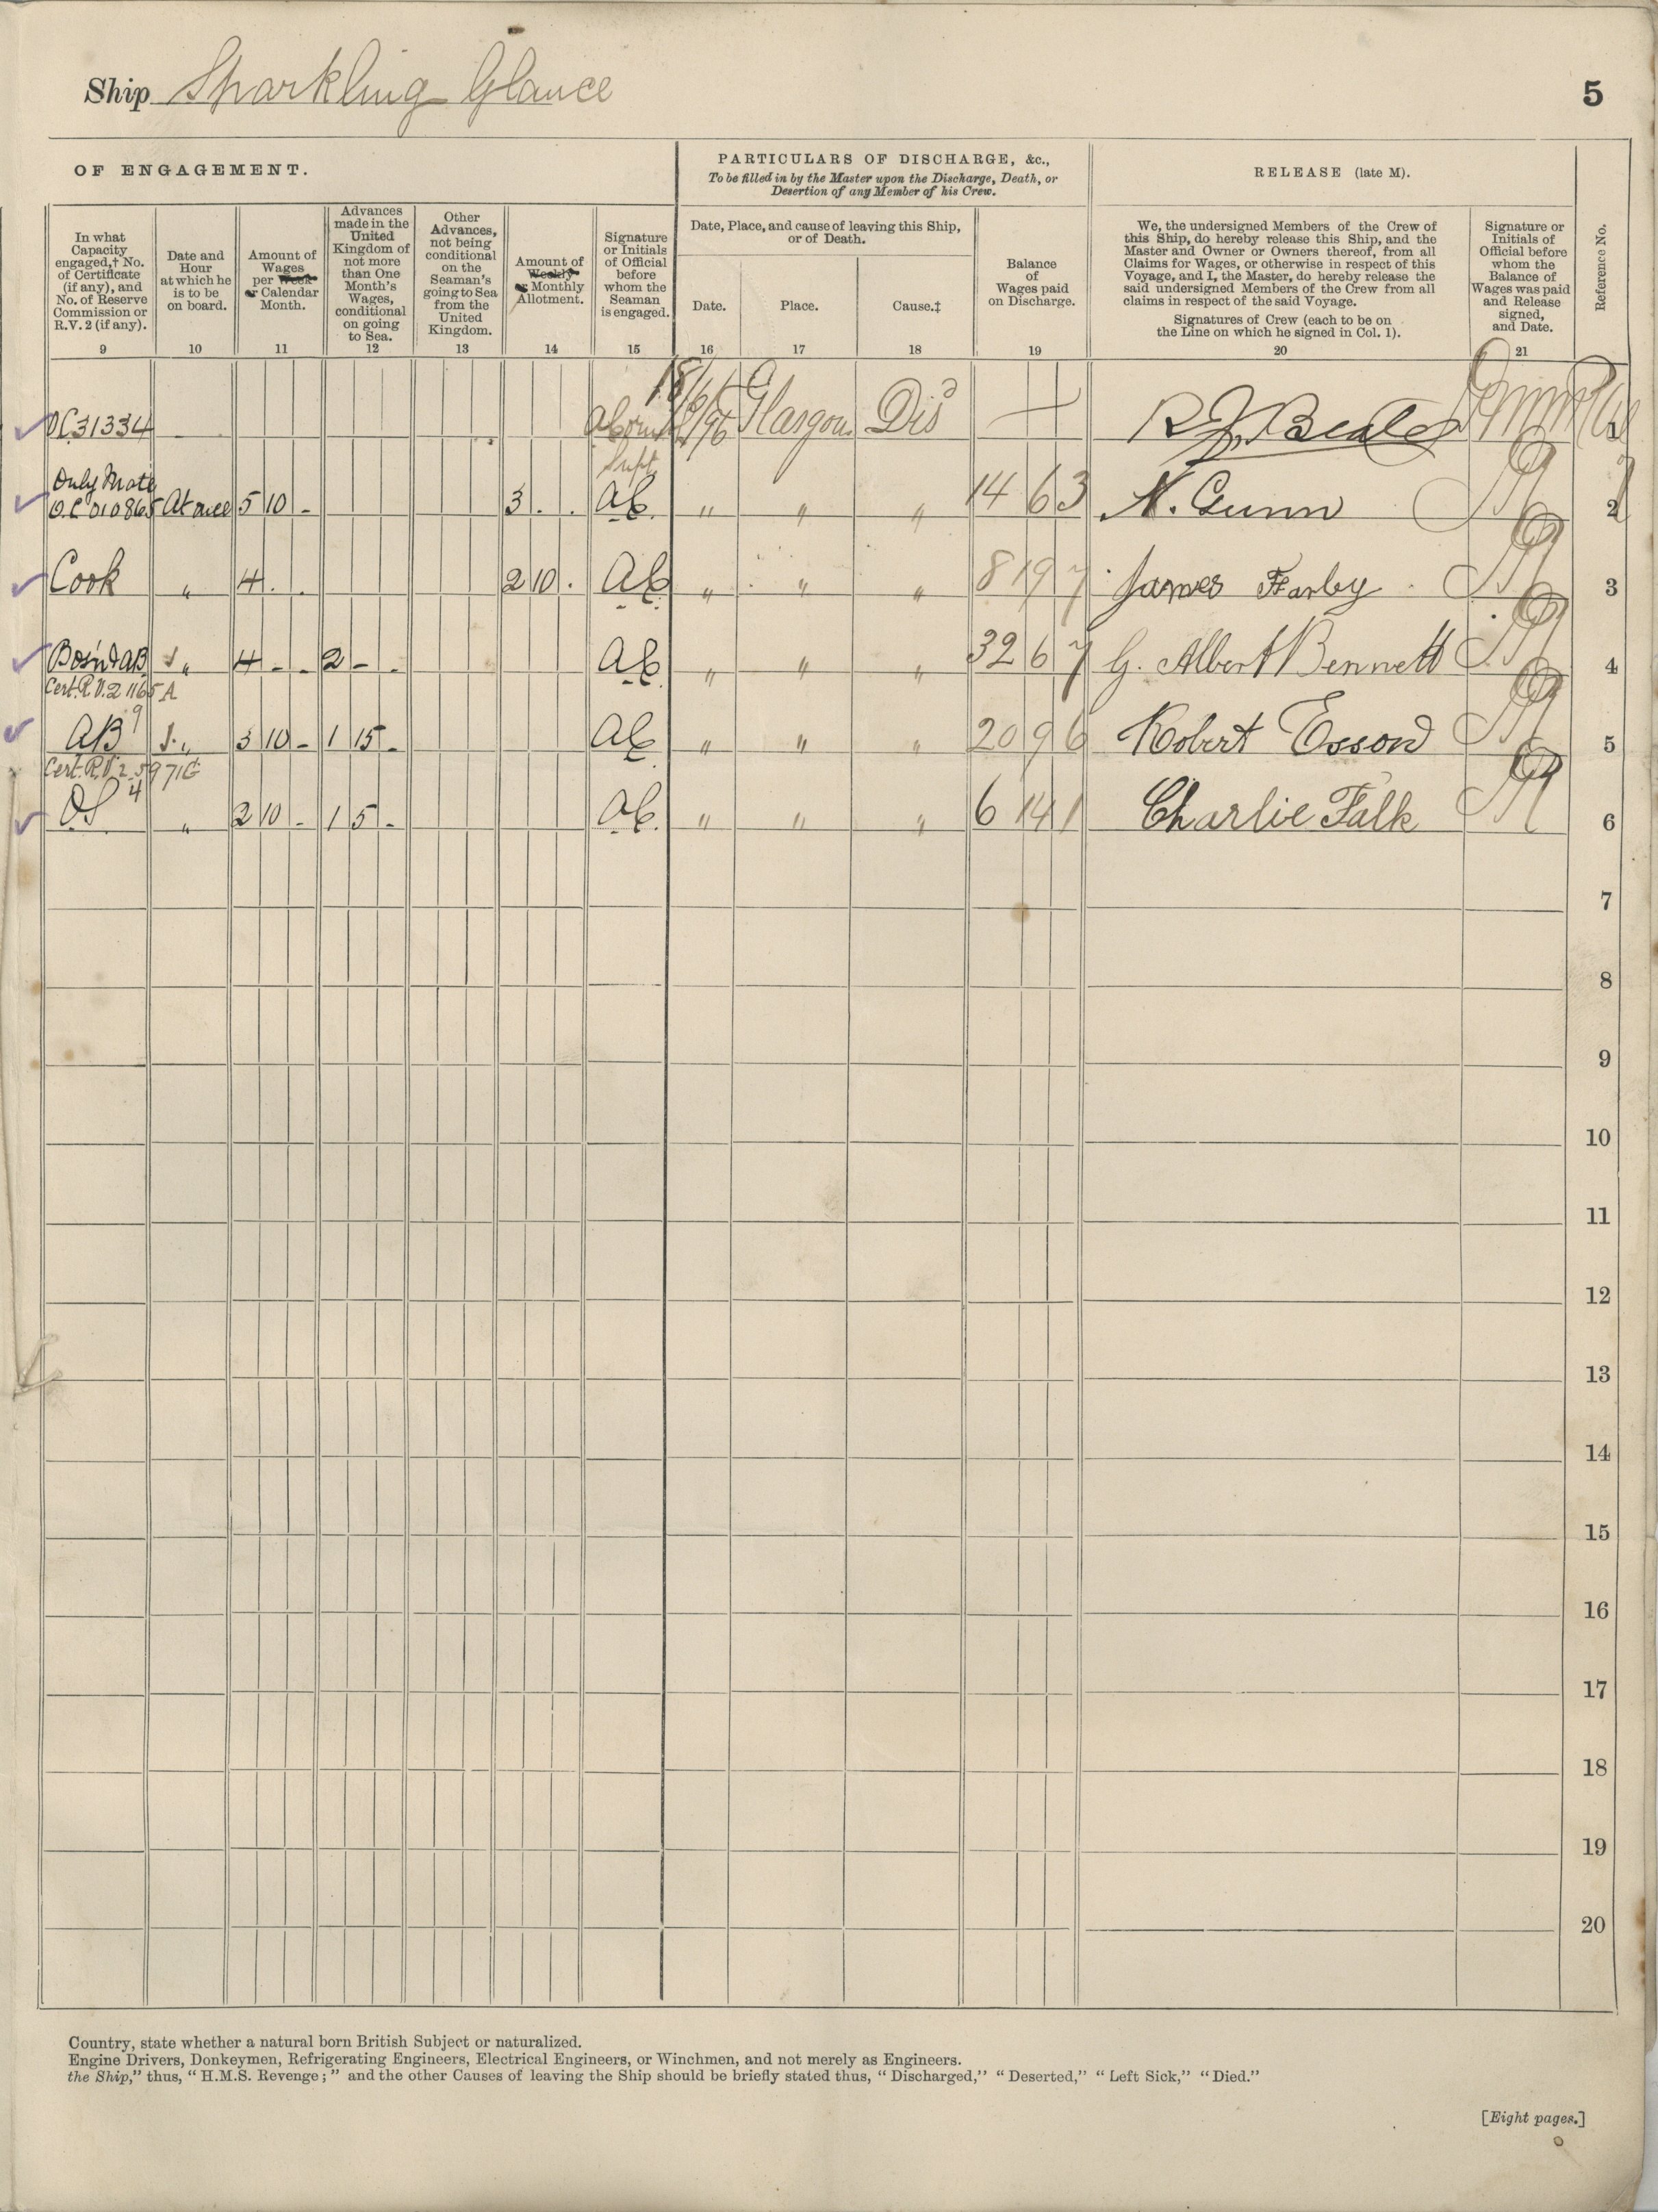 Ship Sparkling Glance 5
OF ENGAGEMENT.
PARTICULARS OF DISCHARGE, &c.,
To be filled in by the Master upon the Discharge, Death, or
Desertion of any Member of his Crew.
RELEASE (late M).
In what
Capacity
engaged,† No.
of Certificate
(if any), and
No. of Reserve
Commission or
R.V. 2 (if any).
9
Date and
Hour
at which he
is to be
on board.
10
Amount of
Wages
per Week
or Calendar
Month.
11
Advances
made in the
United
Kingdom of
not more
than One
Month's
Wages,
conditional
on going
to Sea.
12
Other
Advances,
not being
conditional
on the
Seaman's
going to Sea
from the
United
Kingdom.
13
Amount of
Weekly
or Monthly
Allotment.
14
Signature
or Initials
of Official
before
whom the
Seaman
is engaged.
15
Date, Place, and cause of leaving this Ship,
or of Death.
Date.
16
Place.
17
Cause.‡
18
Balance
of
Wages paid
on Discharge.
19
We, the undersigned Members of the Crew of
this Ship, do hereby release this Ship, and the
Master and Owner or Owners thereof, from all
Claims for Wages, or otherwise in respect of this
Voyage, and I, the Master, do hereby release the
said undersigned Members of the Crew from all
claims in respect of the said Voyage.
Signatures of Crew (each to be on
the Line on which he signed in Col. 1).
20
Signature or
Initials of
Official before
whom the
Balance of
Wages was paid
and Release
signed,
and Date.
21
Reference No.
OC31334 Glasgow Dis 1
Supt
Only Mate
O.C 010865 At once 5 10 - 3 . . AC. " " " 14 6 3 N. Gunn 2
Cook " 4 . . 2 10 . AC " " " 8 19 7 James Farby 3
Bosn & AB " 4 - - 2 - - AC " " " 32 6 7 G. Albert Bennett 4
Cert. R.V. 2 1165 A
AB " 3 10 - 1 15 - AC " " " 20 9 6 Robert Esson 5
Cert. R.V. 2 5971G
OS " 2 10 - 1 5 - AC. " " " 6 14 1 Charlie Falk 6
7
8
9
10
11
12
13
14
15
16
17
18
19
20
Country, state whether a natural born British Subject or naturalized.
Engine Drivers, Donkeymen, Refrigerating Engineers, Electrical Engineers, or Winchmen, and not merely as Engineers.
the Ship," thus, "H.M.S. Revenge;" and the other Causes of leaving the Ship should be briefly stated thus, "Discharged," "Deserted," "Left Sick," "Died."
[Eight pages.]